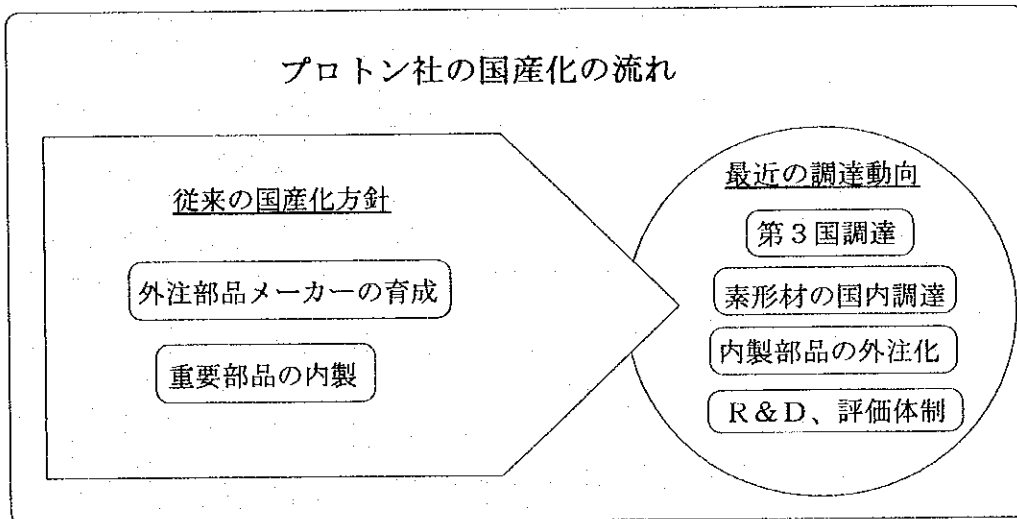 プロトン社の国産化の流れ
従来の国産化方針
外注部品メーカーの育成
重要部品の内製
最近の調達動向
第3国調達
素形材の国内調達
内製部品の外注化
R&D、評価体制